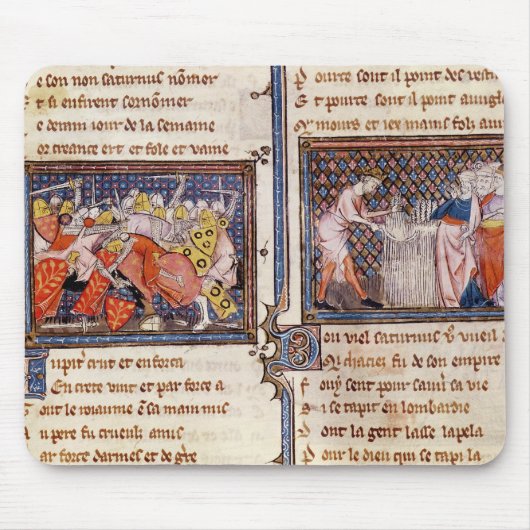 e son non saturnus nõmer
t si enfirent sornõmer
e demn iour de la semaine
or creance ert et fole et vaine
upit' crut et enforca
En crete vint et par force a
out le roiaume ẽ sa main mis
u pere fu crueuls amis
ar force darmes et de gẽt
P ourte sont il point des
E t pourte sont il point auugl
mours et iex mains folz
ou viel saturnus
chacies fu de son empire
f ouy sent pour sauu' sa vie
s i se tapit en lombardie
D ont la gent lasse lapela
P our le dieu qui se tapi la